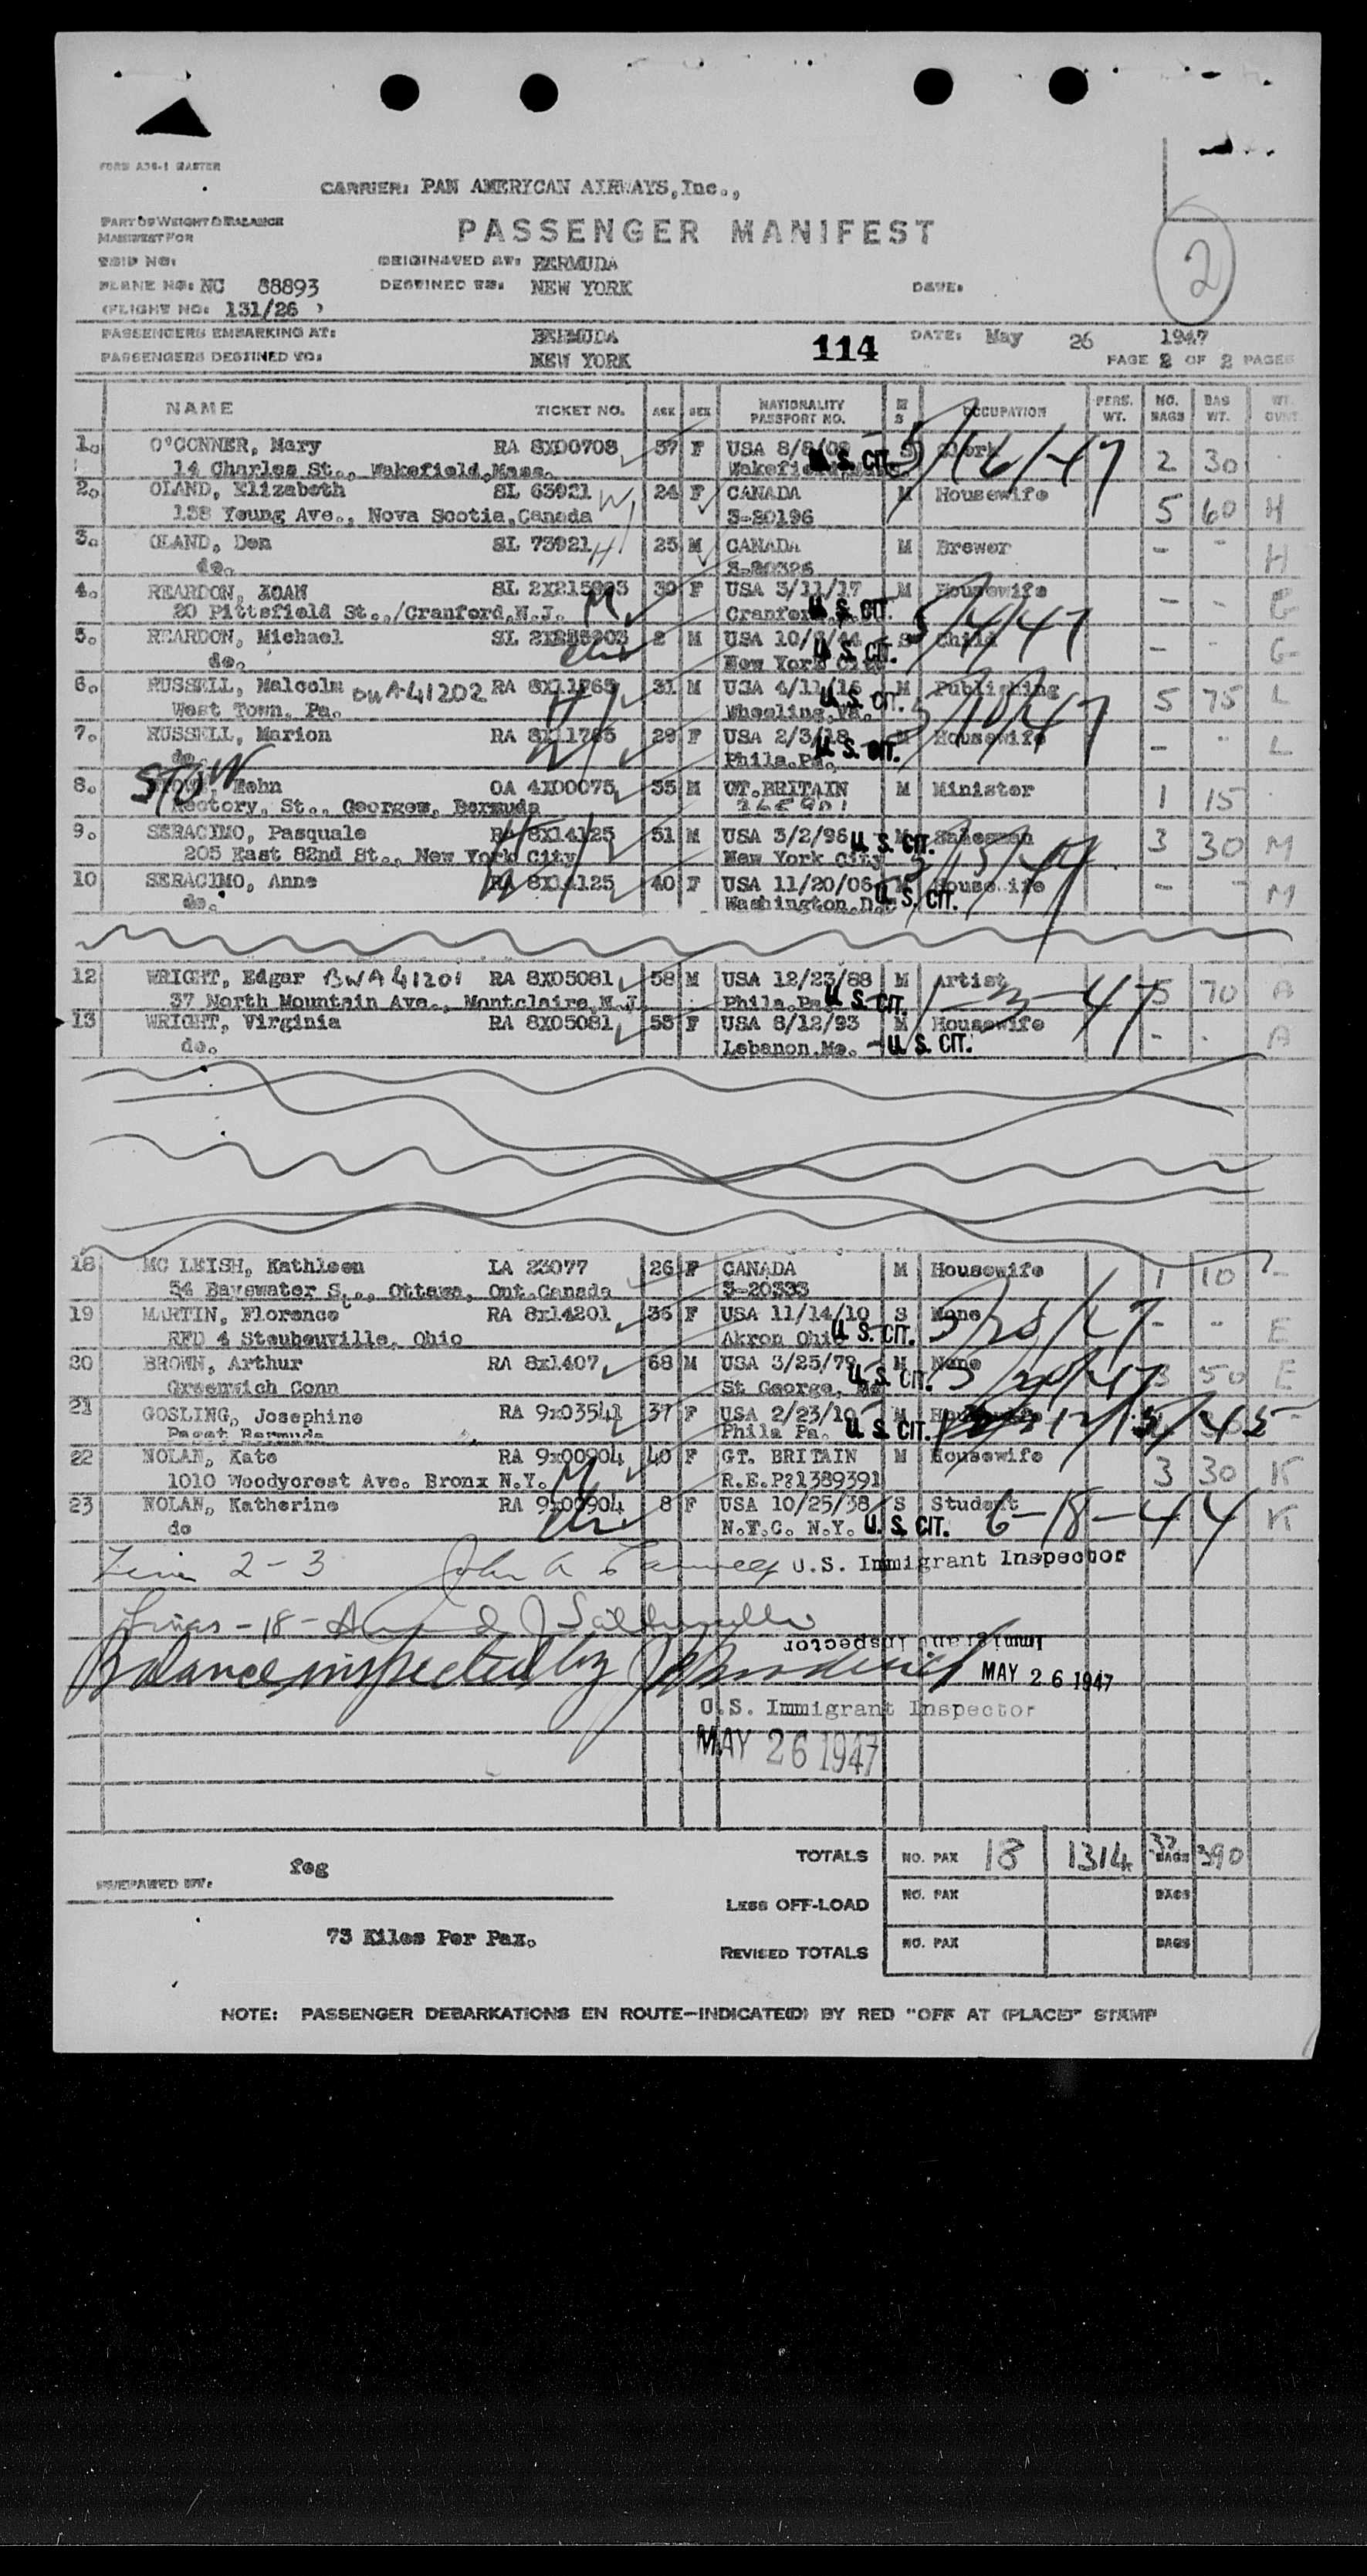 FORM A36-1 MASTER
CARRIER: PAN AMERICAN AIRWAYS, Inc.,
PART OF WEIGHT & BALANCE
MANIFEST FOR
PASSENGER MANIFEST
TRIP NO: ORIGINATED AT: BERMUDA
PLANE NO: NC 88893 DESTINED TO: NEW YORK DATE:
2
(FLIGHT NO: 131/26 )
PASSENGERS EMBARKING AT: BERMUDA 114 DATE: May 26 1947
PASSENGERS DESTINED TO: NEW YORK PAGE 2 OF 2 PAGES
NAME TICKET NO. AGE SEX NATIONALITY PASSPORT NO. M S OCCUPATION PERS. WT. NO. BAGS BAG WT. WT. OVNT.
1. O'CONNER, Mary RA 8X00708 37 F USA 8/8/09 S Clerk 5/16/47 2 30
14 Charles St., Wakefield, Mass. U. S. CIT.
2. OLAND, Elizabeth SL 63921 W 24 F CANADA M Housewife 5 60 H
138 Young Ave., Nova Scotia, Canada 3-20196
3. OLAND, Don SL 73921 H 25 M CANADA M Brewer - - H
do.
4. REARDON, JOAN 30 F USA 3/11/17 M Housewife - - G
20 Pittsfield St.,/Cranford, N.J. M U. S. CIT. 5/4/47
5. REARDON, Michael 2 M S Child - - G
do. New York City U. S. CIT.
6. RUSSELL, Malcolm A-41202 RA 31 M USA 4/11/16 M Publishing 5 75 L
West Town, Pa. H Wheeling, Va. U. S. CIT. 5/10/47
7. RUSSELL, Marion RA 29 F USA 2/3/18 M Housewife - " L
do. W Phila. Pa. U. S. CIT.
STOW
8. OA 4X00075 35 M GT. BRITAIN M Minister 1 15
Rectory, St., Georges, Bermuda
9. SERACINO, Pasquale RA 8X14125 51 M USA 3/2/96 M Salesman 3 30 M
205 East 82nd St., New York City H New York City U. S. CIT.
10 SERACINO, Anne RA 8X14125 40 F USA 11/20/06 Housewife - - M
do. W Washington, D.C U. S. CIT.
12 WRIGHT, Edgar BWA 41201 RA 8X05081 58 M USA 12/23/88 M Artist 5 70 A
37 North Mountain Ave., Montclaire, N.J. Phila. Pa. U. S. CIT.
13 WRIGHT, Virginia RA 8X05081 53 F USA 8/12/93 M Housewife - - A
do. Lebanon. Me. - U. S. CIT.
18 MC LEISH, Kathleen LA 23077 26 F CANADA M Housewife 1 10 -
54 Bayswater S.., Ottawa, Ont. Canada 3-20333
19 MARTIN, Florence RA 8x14201 36 F USA 11/14/10 S None - - E
RFD 4 Steubeuville, Ohio Akron Ohio U. S. CIT.
20 BROWN, Arthur RA 8x1407 68 M USA 3/25/79 M None 3 50 E
Greenwich Conn St George, U. S. CIT.
21 GOSLING, Josephine RA 9x03541 37 F USA 2/23/10 M 12/15/45
Paget Bermuda Phila Pa. U. S. CIT.
22 NOLAN, Kate RA 9x00904 40 F GT. BRITAIN M Housewife 3 30 K
1010 Woodycrest Ave. Bronx N.Y. M R.E.P:1389391
23 NOLAN, Katherine RA 9x00904 8 F USA 10/25/38 S Student 6-18-44 K
do N.Y.C. N.Y. U. S. CIT.
2-3 John A U.S. Immigrant Inspector
- 18 -
Immigrant Inspector
Balance inspected by MAY 26 1947
U.S. Immigrant Inspector
MAY 26 1947
TOTALS NO. PAX 18 1314 37 BAGS 390
feg
PREPARED BY:
LESS OFF-LOAD NO. PAX BAGS
73 Kilos Per Pax.
REVISED TOTALS NO. PAX BAGS
NOTE: PASSENGER DEBARKATIONS EN ROUTE-INDICATE(D) BY RED "OFF AT (PLACE)" STAMP